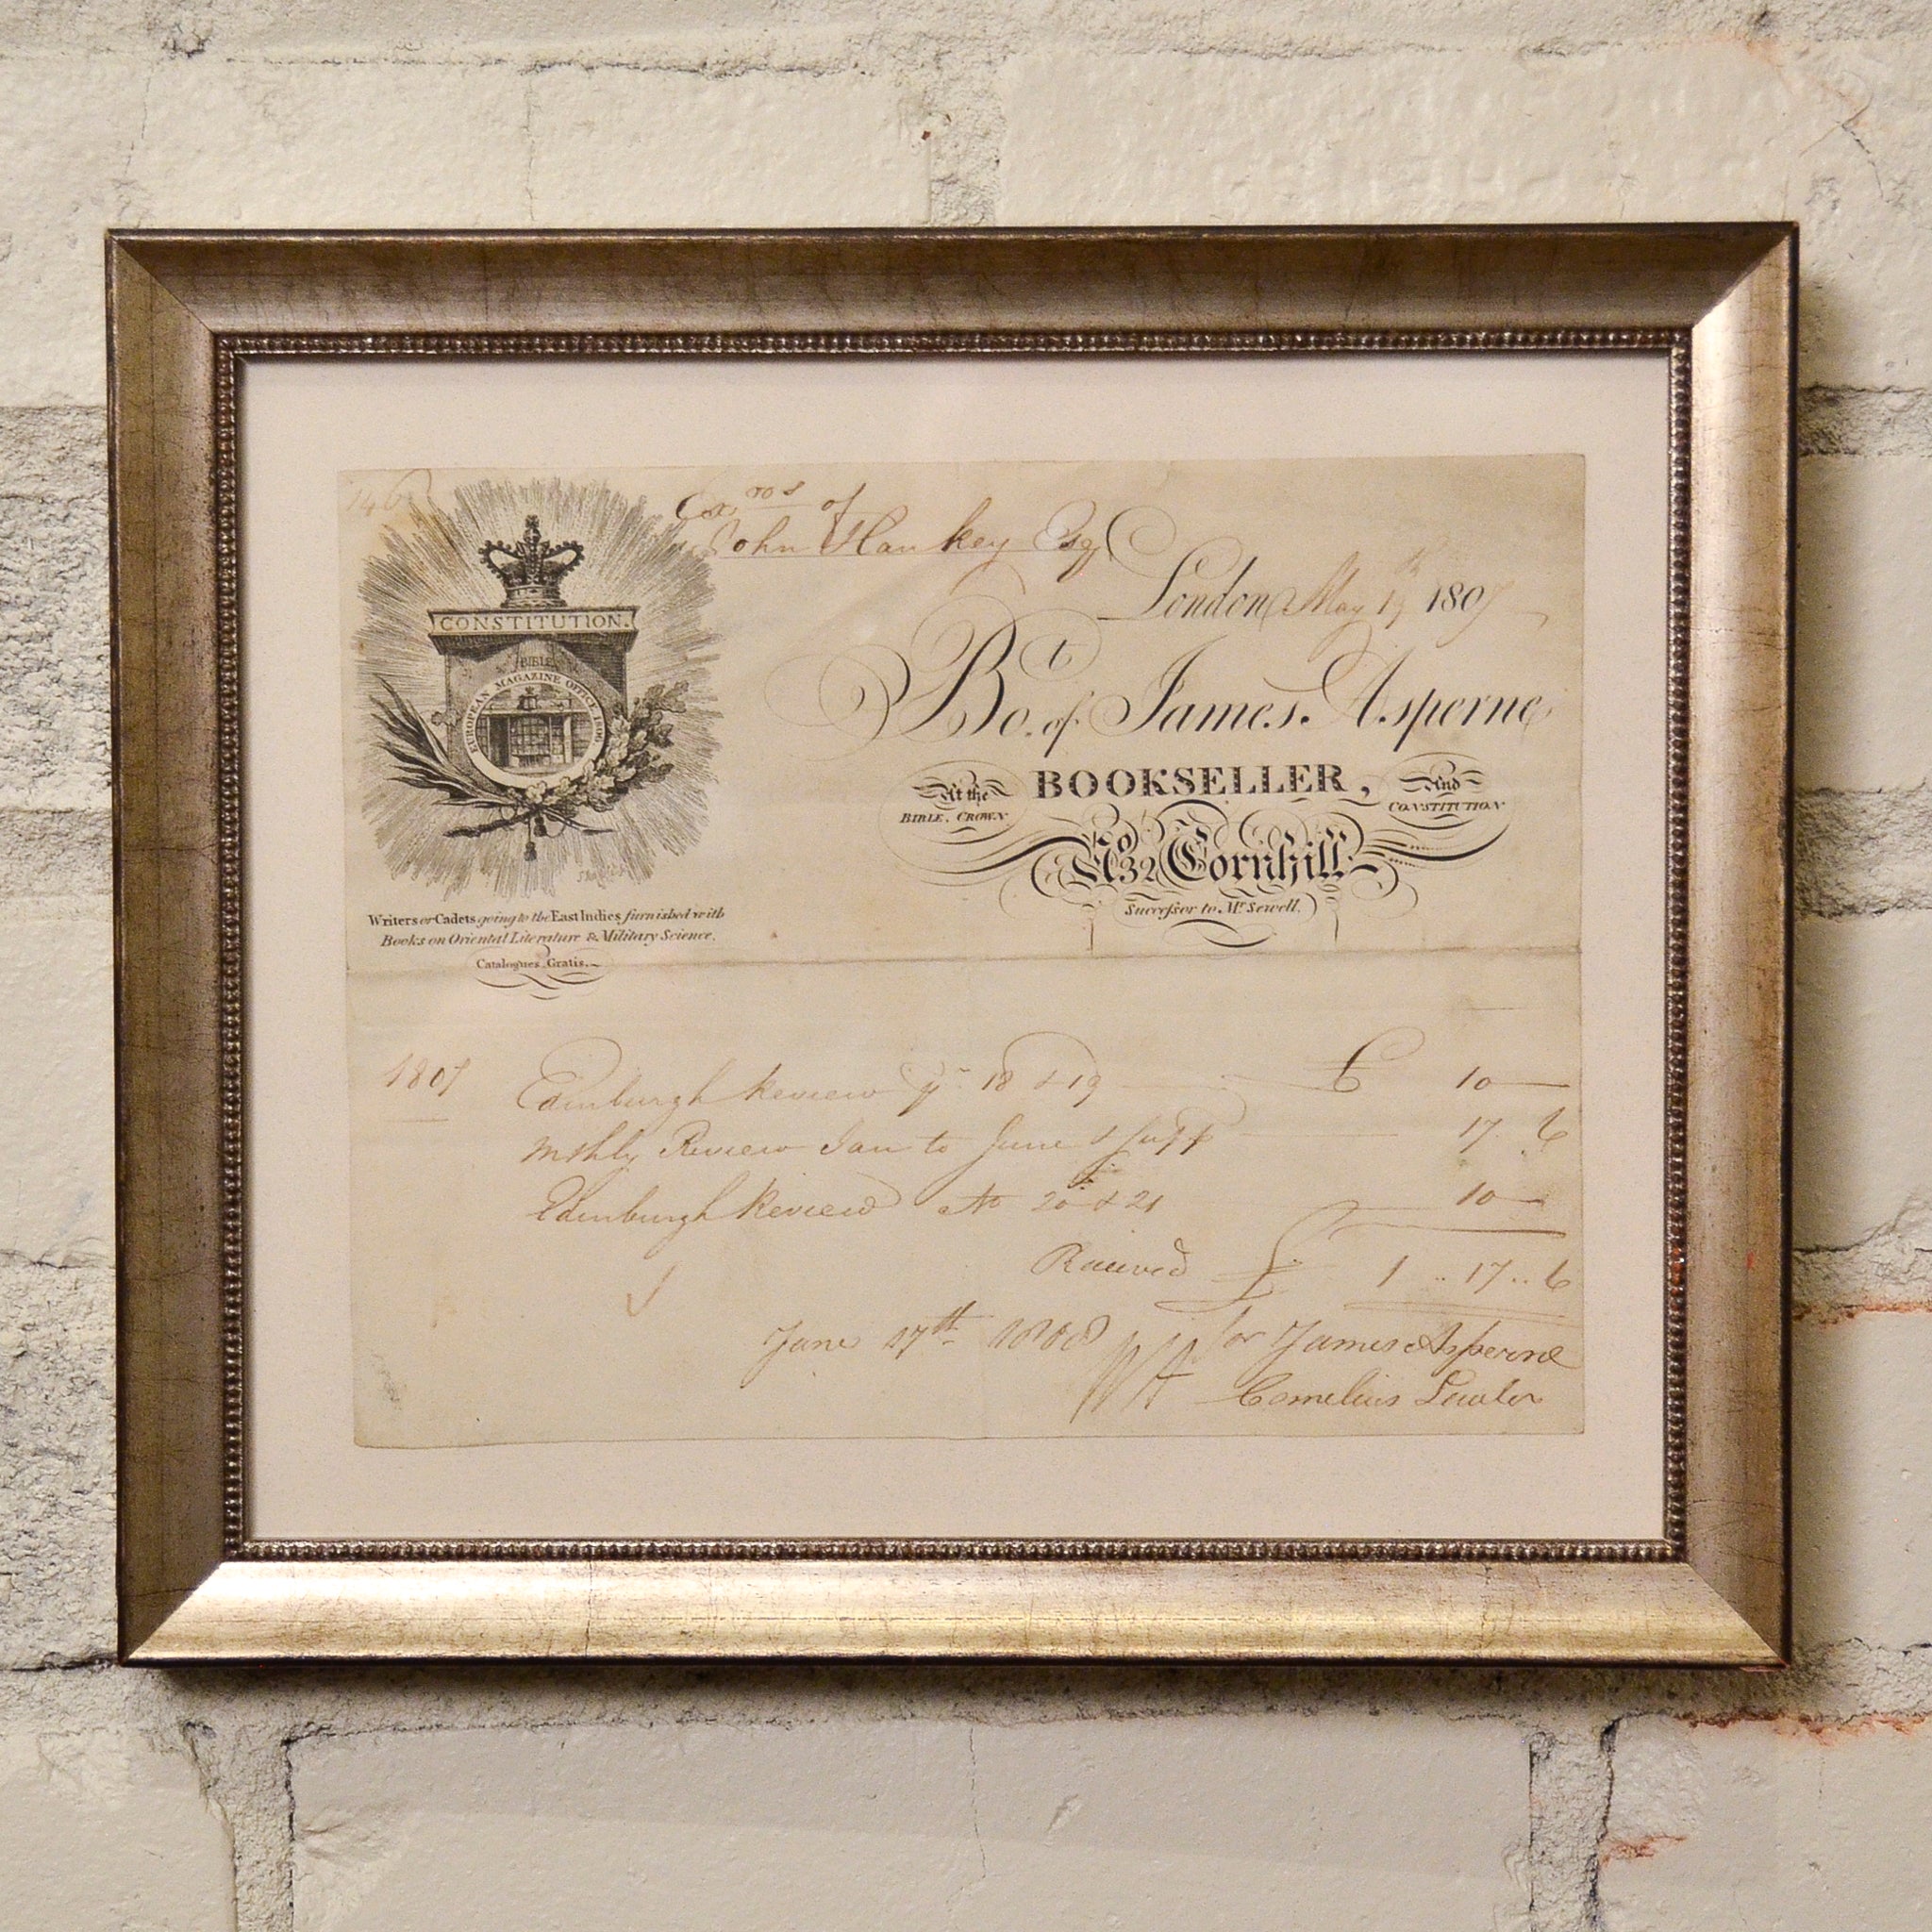 Exros of
John Hankey Esq
London May 1807
CONSTITUTION.
BIBLE
EUROPEAN MAGAZINE OFFICE
Bot. of James Asperne
At the
BIBLE, CROWN
BOOKSELLER,
And
CONSTITUTION
No 32 Cornhill
Successor to Mr Sewell.
Writers or Cadets going to the East Indies furnished with
Books on Oriental Literature & Military Science.
Catalogues Gratis.
1807 Edinburgh Review 18 & 19 £ 10
Mthly Review Jan to June & Supp 17 6
Edinburgh Review No 20 & 21 10
Received £ 1 .. 17 .. 6
June 17th 1808 for James Asperne
Cornelius